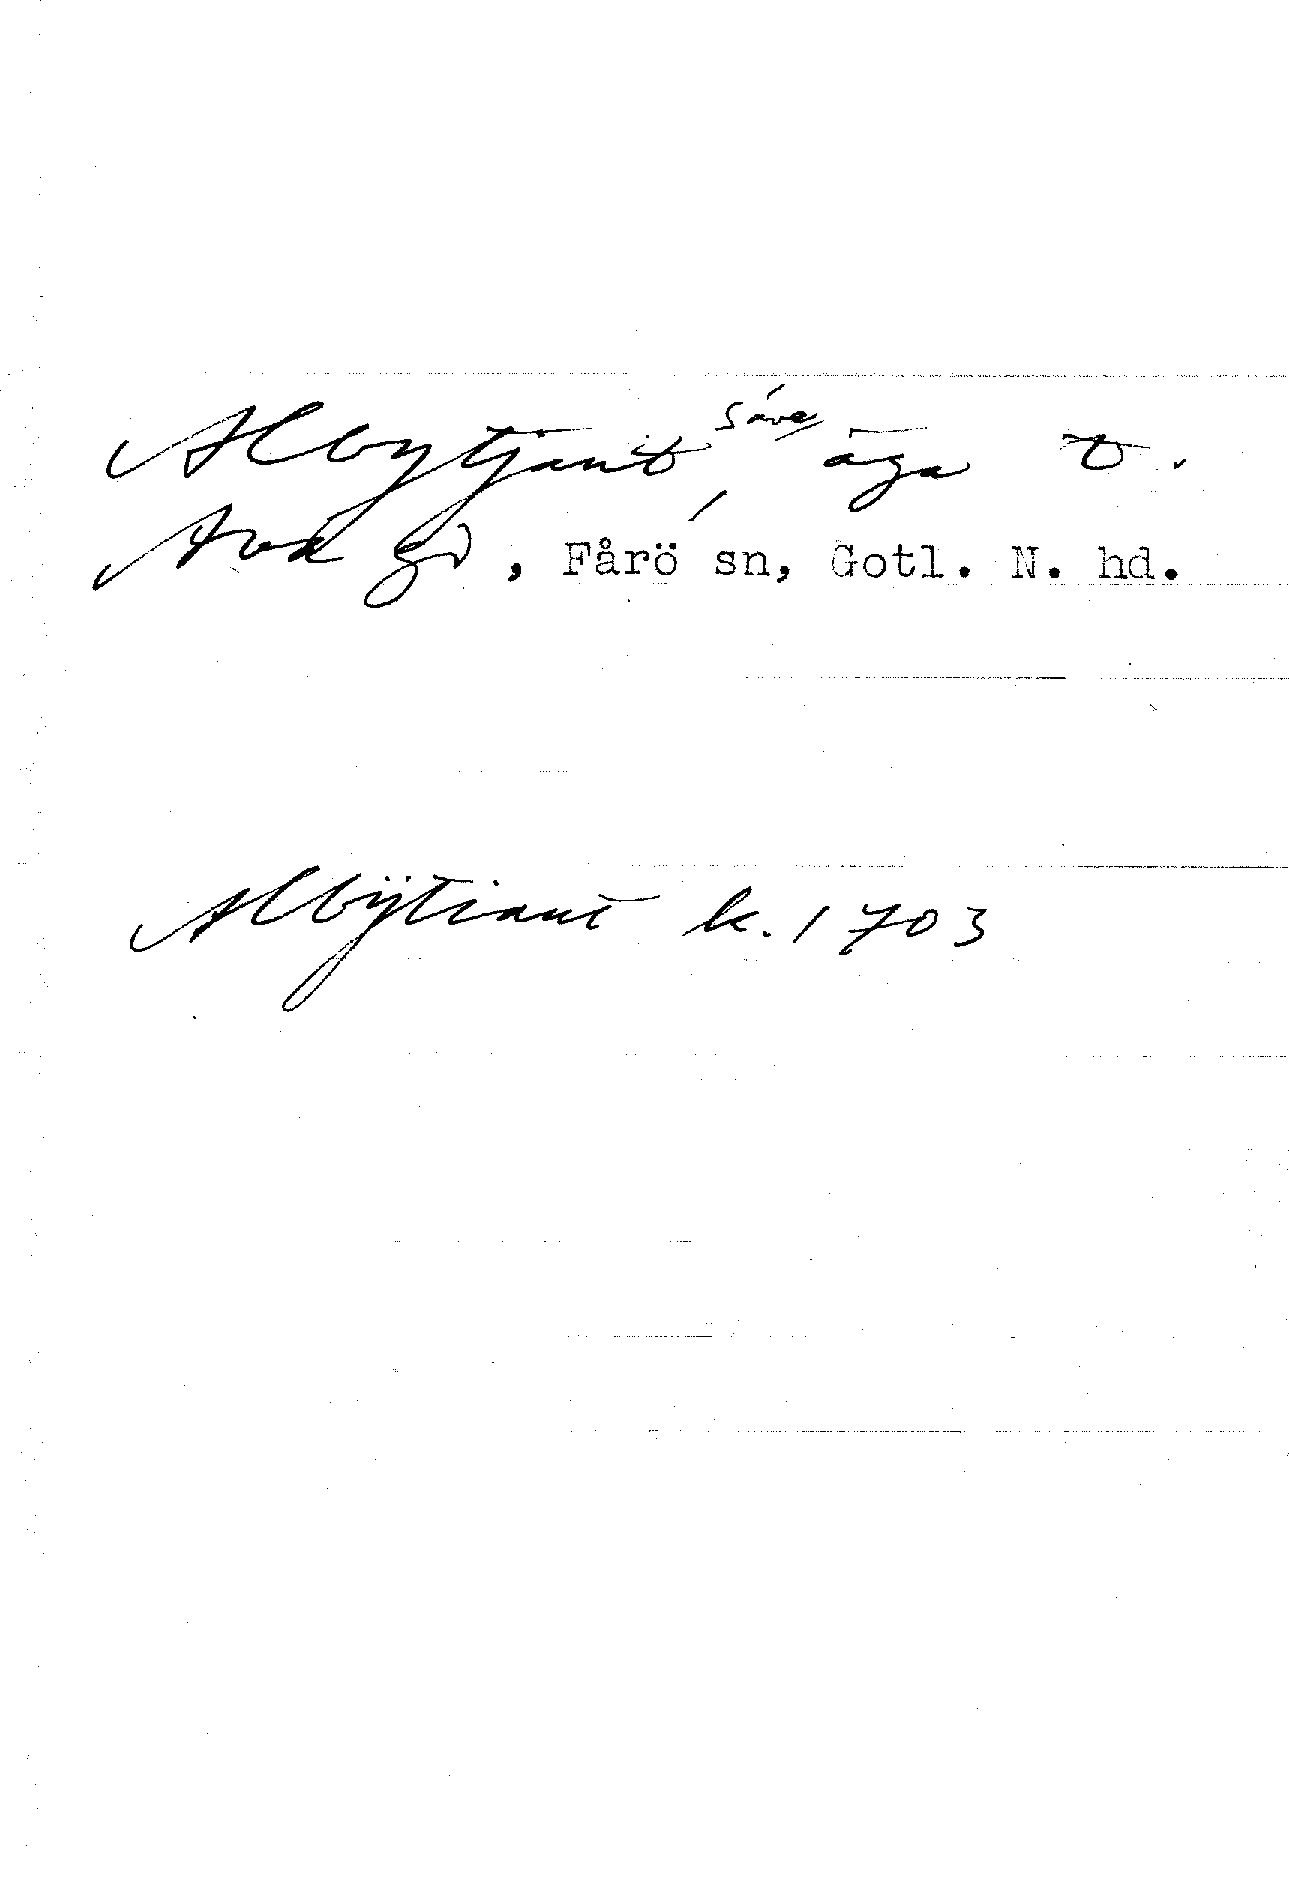 Albytjänt, Säve äga t.
Ava gd, Fårö sn, Gotl. N. hd.
Albÿtiant k. 1703